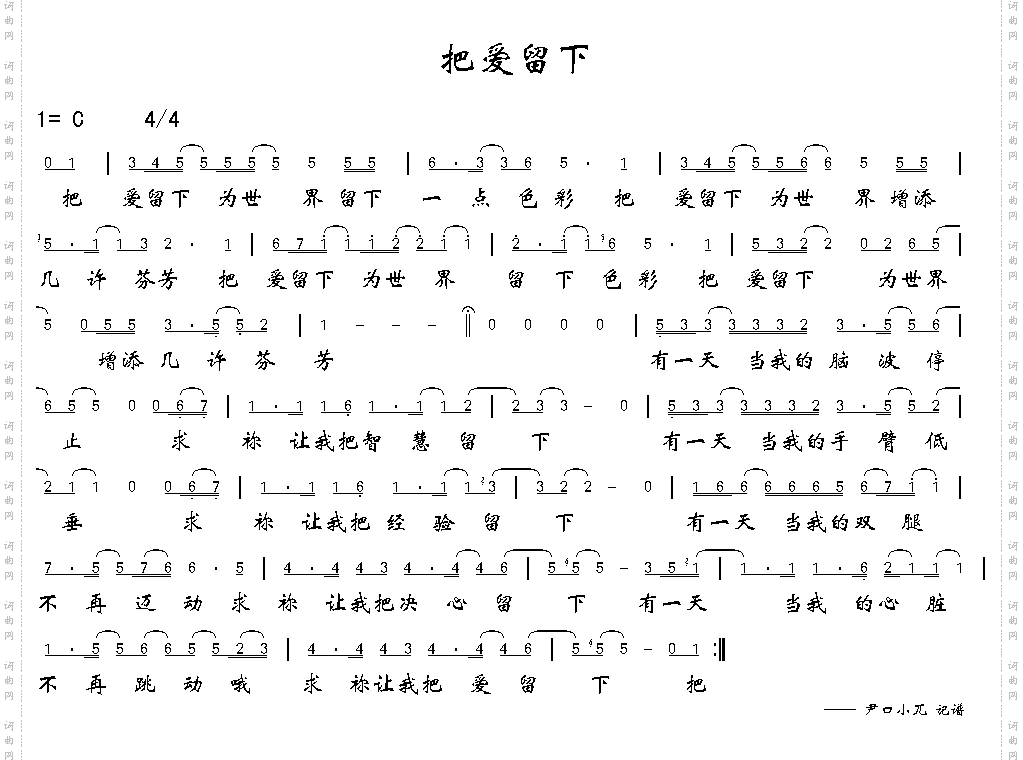 把爱留下
1= C 4/4
0 1 | 3 4 5 5 5 5 5 5 5 5 | 6 · 3 3 6 5 · 1 | 3 4 5 5 5 6 6 5 5 5 |
把 爱留下 为世 界 留下 一 点 色 彩 把 爱留下 为世 界 增添
5 · 1 1 3 2 · 1 | 6 7 1 1 1 2 2 1 1 | 2 · 1 1 6 5 · 1 | 5 3 2 2 0 2 6 5 |
几 许 芬芳 把 爱留下 为世 界 留 下 色 彩 把 爱留下 为世界
5 0 5 5 3 · 5 5 2 | 1 – – – ‖ 0 0 0 0 | 5 3 3 3 3 3 2 3 · 5 5 6 |
增添 几 许 芬 芳 有一天 当我的 脑 波 停
6 5 5 0 0 6 7 | 1 · 1 1 6 1 · 1 1 2 | 2 3 3 – 0 | 5 3 3 3 3 3 2 3 · 5 5 2 |
止 求 祢 让我把智 慧 留 下 有一天 当我的手 臂 低
2 1 1 0 0 6 7 | 1 · 1 1 6 1 · 1 1 3 | 3 2 2 – 0 | 1 6 6 6 6 6 5 6 7 1 1 |
垂 求 祢 让我把 经 验 留 下 有一天 当我的双 腿
7 · 5 5 7 6 6 · 5 | 4 · 4 4 3 4 · 4 4 6 | 5 5 5 – 3 5 1 | 1 · 1 1 · 6 2 1 1 1 |
不 再 迈 动 求 祢 让我把决 心 留 下 有一天 当我 的心 脏
1 · 5 5 6 6 5 5 2 3 | 4 · 4 4 3 4 · 4 4 6 | 5 5 5 – 0 1 :‖
不 再 跳 动 哦 求 祢让我把 爱 留 下 把
—— 尹口小兀 记谱
词曲网